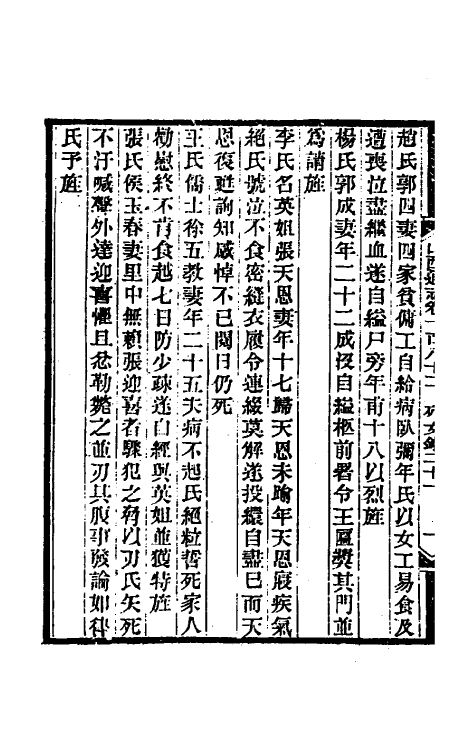 趙氏郭四妻四家貧傭工自給病臥彌年氏以女工易食及
遭喪泣盡繼血遂自縊尸旁年甫十八以烈旌
楊氏郭成妻年二十二成沒自縊柩前署令王匾獎其門並
爲請旌
李氏名英姐張天恩妻年十七歸天恩未踰年天恩寢疾氣
絕氏號泣不食密縫衣履令連綴莫解遂投繯自盡已而天
恩復甦詢知感悼不已閱日仍死
王氏儒士徐五教妻年二十五夫病不起氏絕粒誓死家人
勸慰終不肯食越七日防少疎遂自經與英姐並獲特旌
張氏侯玉春妻里中無賴張迎喜者驟犯之脅以刃氏矢死
不汙喊聲外達迎喜懼且忿勒斃之並刃其腹事發論如律
氏予旌
山西通志卷一百八十二 列女錄二十一